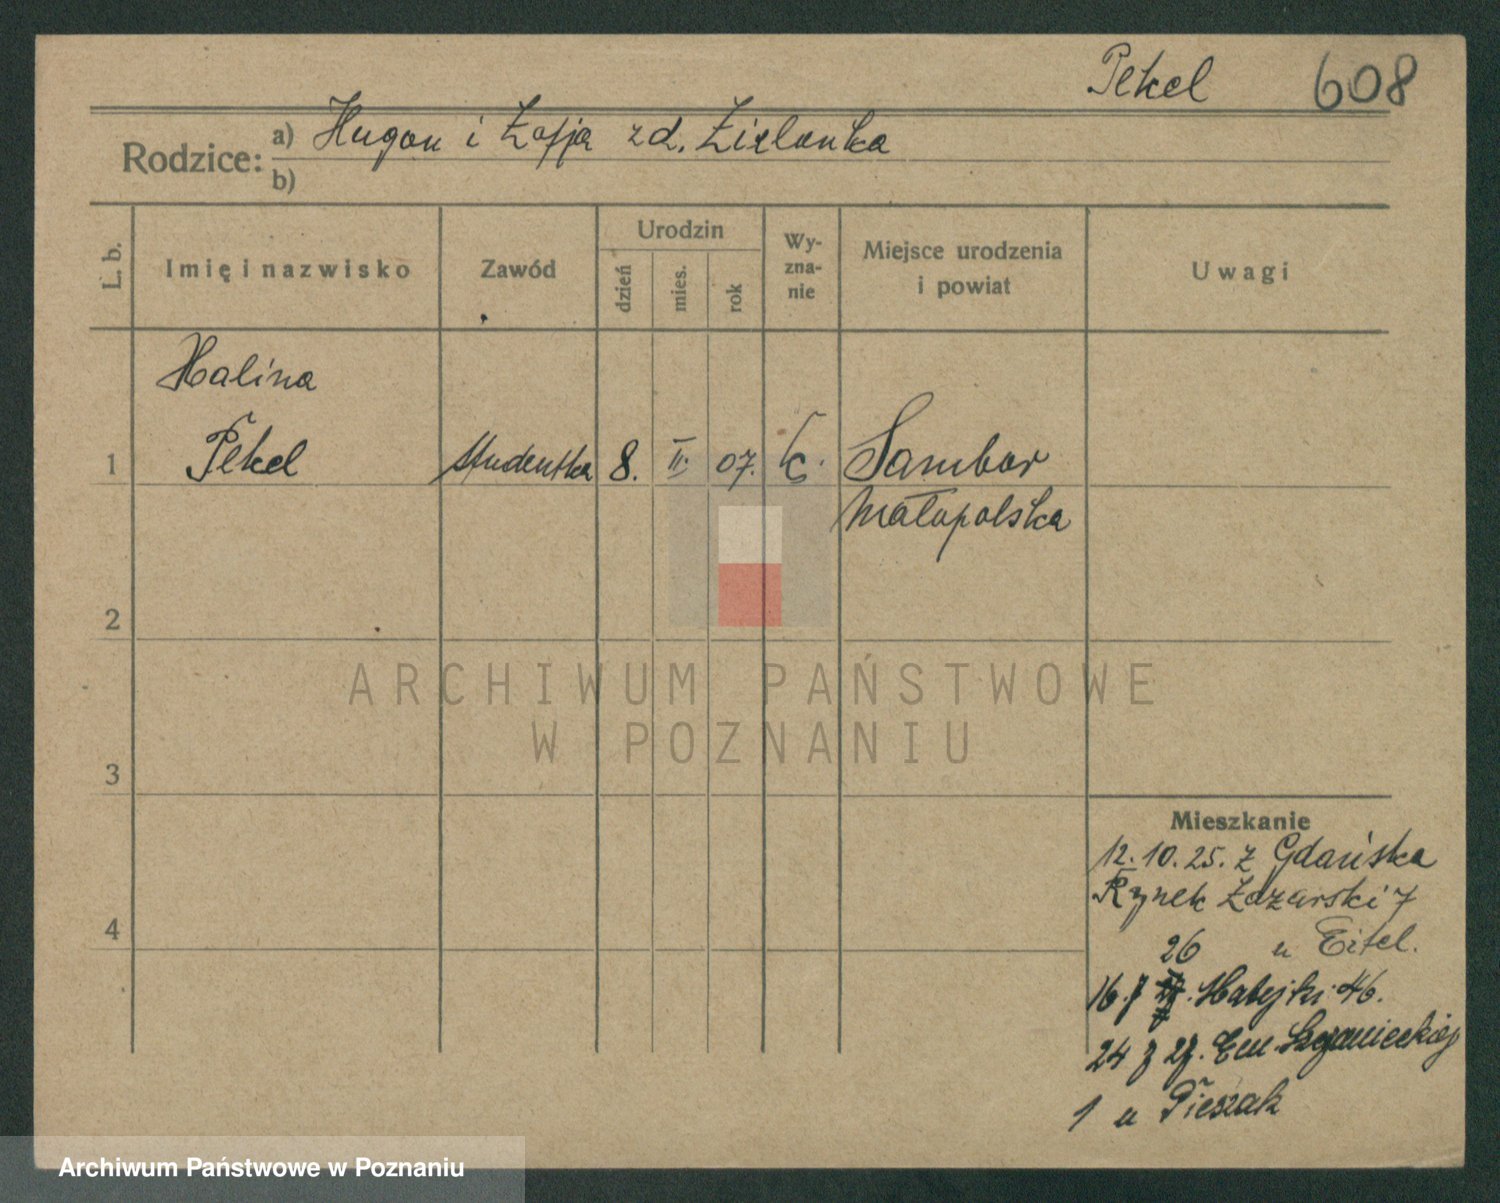 Pekel 608
Rodzice: a) Hugon i Zofja zd. Zielonka
b)
L. b. Imię i nazwisko Zawód Urodzin dzień mies. rok Wy-zna-nie Miejsce urodzenia i powiat Uwagi
Halina
1 Pekel studentka 8. II. 07. Sambor
Małopolska
2
ARCHIWUM PAŃSTWOWE
W POZNANIU
3
Mieszkanie
12.10.25. z Gdańska
Rynek Łazarski 7
4
26 u Eitel.
16.7 Matejki 46.
24 7 27. Em. Szczanieckiej
1 u Pieszak
Archiwum Państwowe w Poznaniu